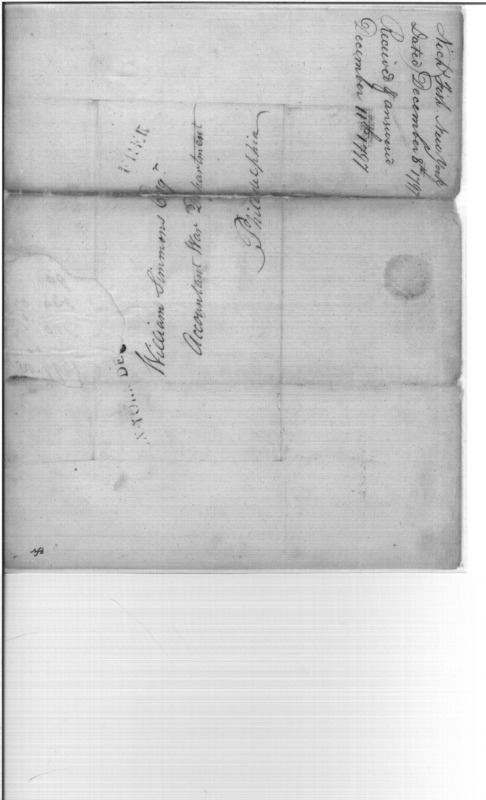 Nichs Fish New York
Dated December 8th 1797
Received & answered
December 11th 1797
FREE
William Simmons Esqr
Accountant War Department
Philadelphia
DE